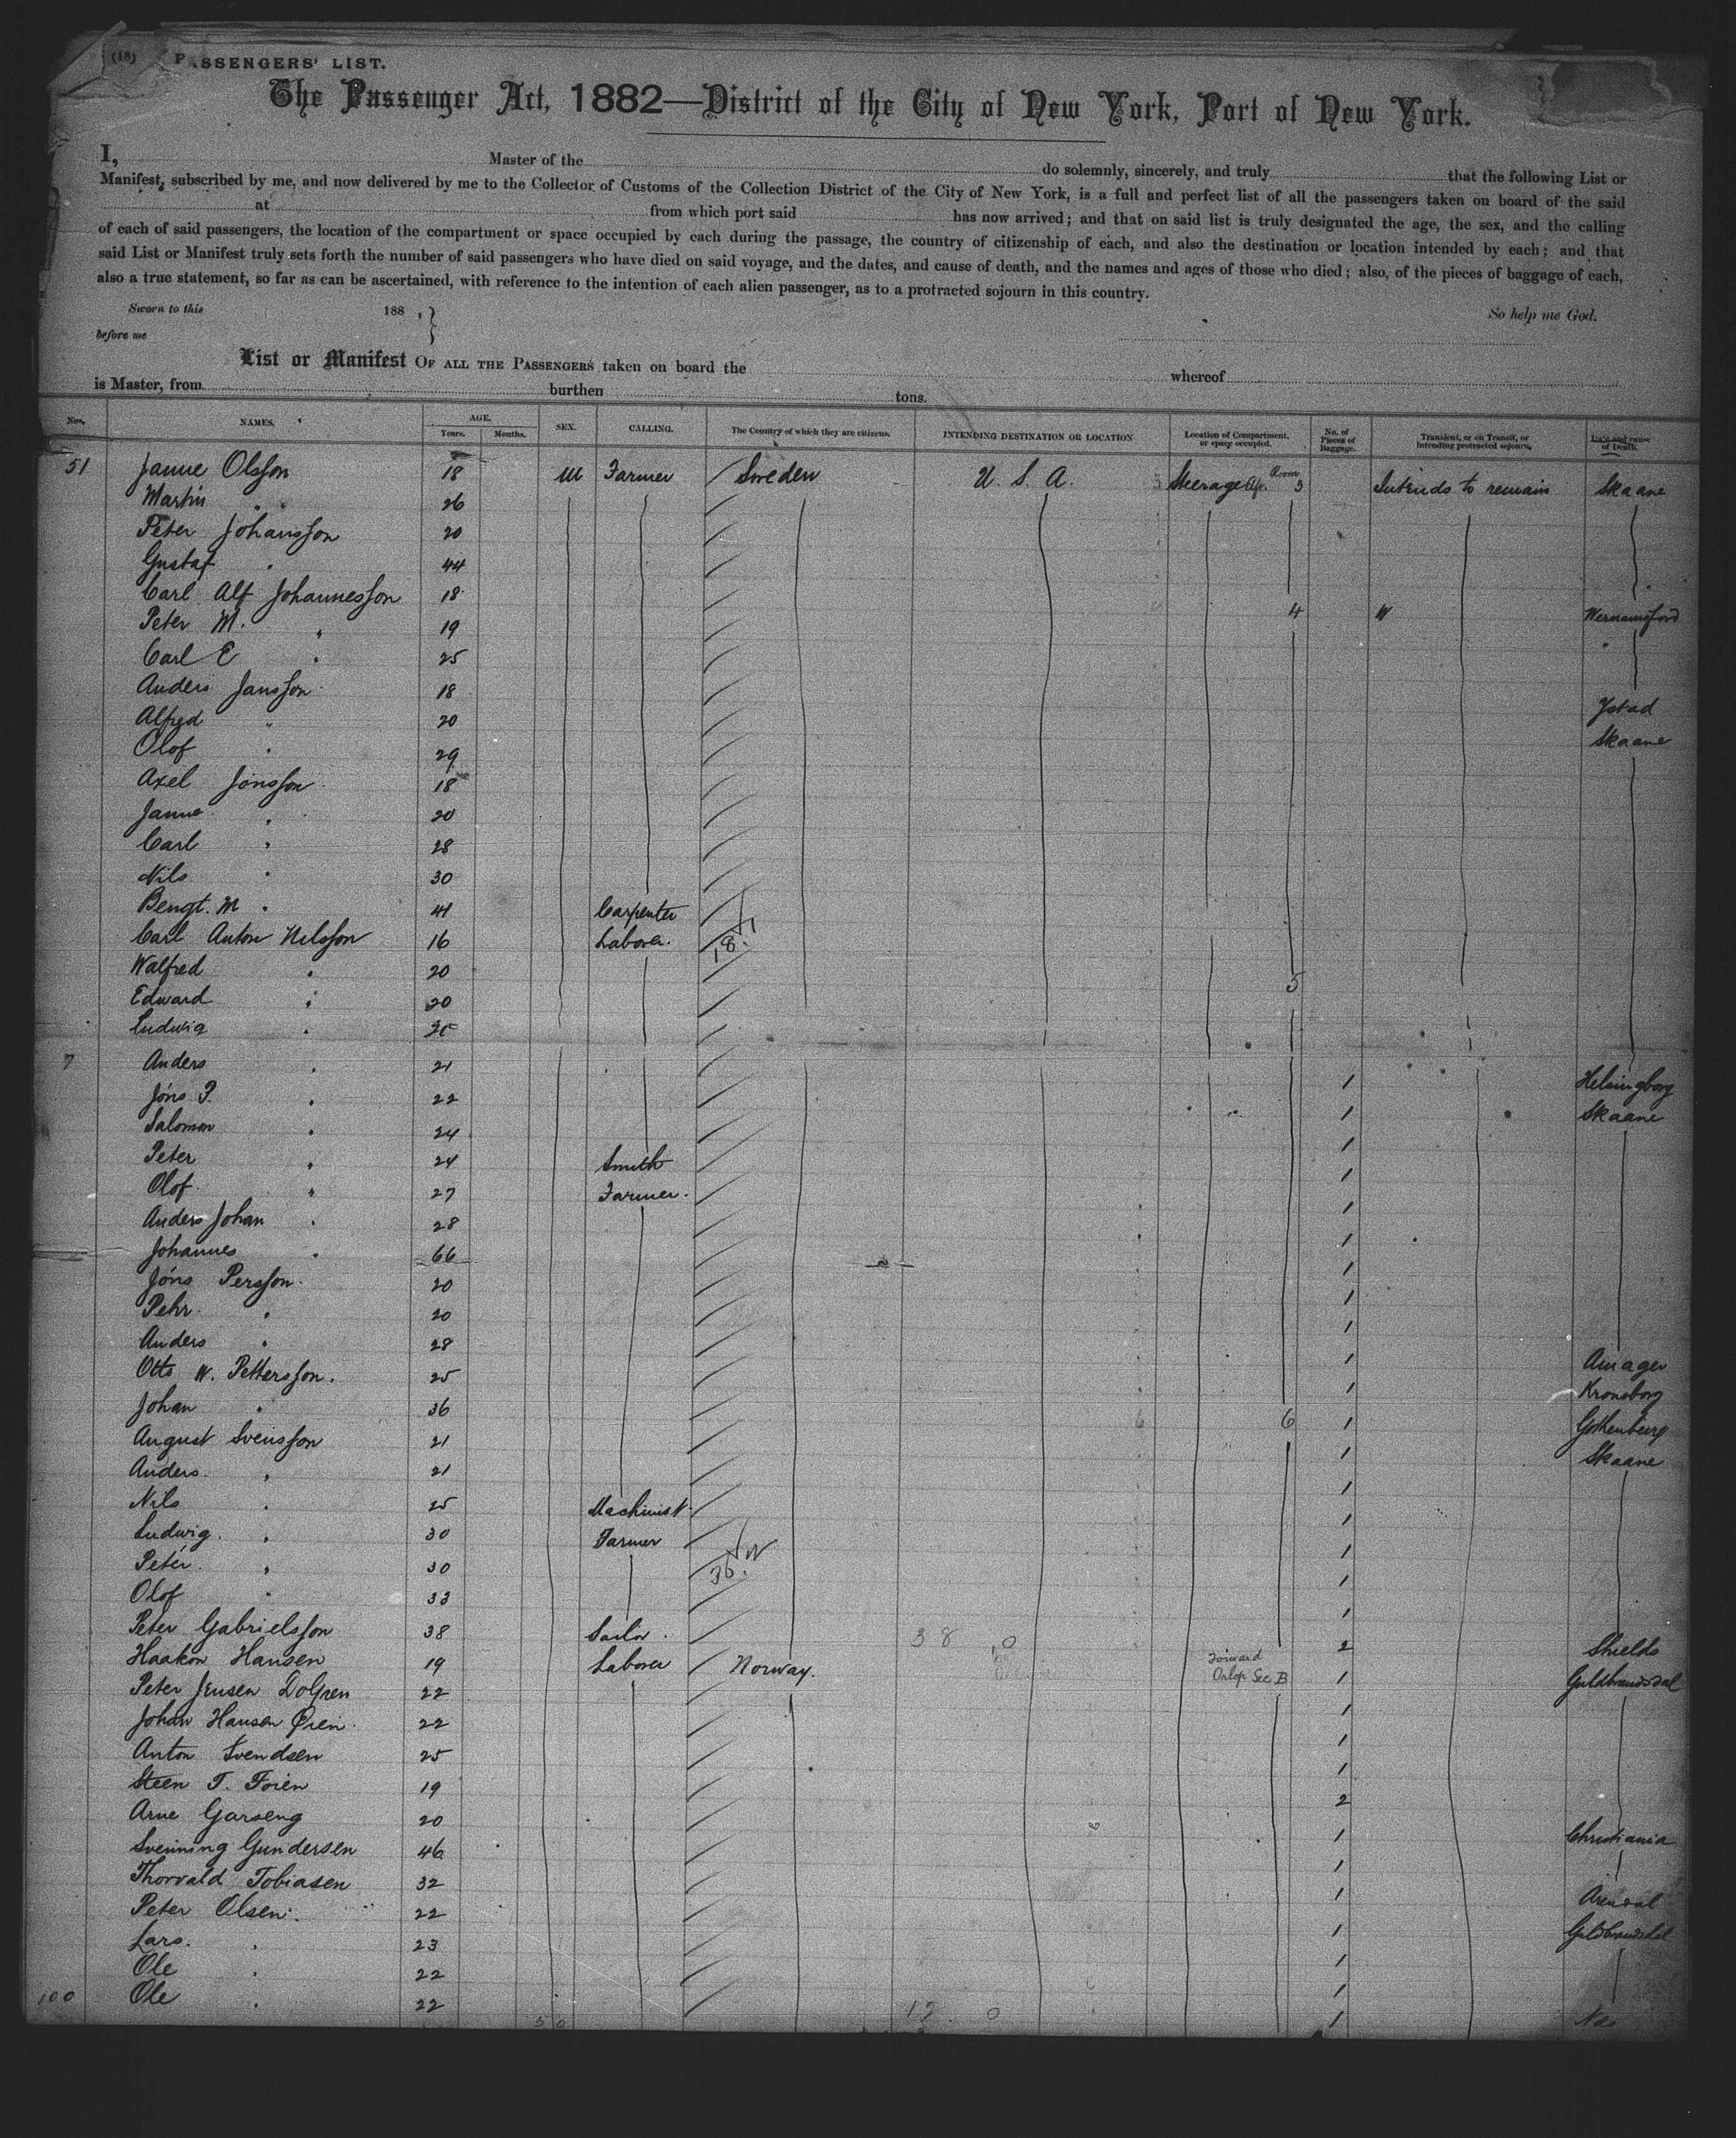 (18) PASSENGERS' LIST.
The Passenger Act, 1882—District of the City of New York, Port of New York.
I, Master of the do solemnly, sincerely, and truly that the following List or
Manifest, subscribed by me, and now delivered by me to the Collector of Customs of the Collection District of the City of New York, is a full and perfect list of all the passengers taken on board of the said
at from which port said has now arrived; and that on said list is truly designated the age, the sex, and the calling
of each of said passengers, the location of the compartment or space occupied by each during the passage, the country of citizenship of each, and also the destination or location intended by each; and that
said List or Manifest truly sets forth the number of said passengers who have died on said voyage, and the dates, and cause of death, and the names and ages of those who died; also, of the pieces of baggage of each,
also a true statement, so far as can be ascertained, with reference to the intention of each alien passenger, as to a protracted sojourn in this country.
Sworn to this 188 , } So help me God.
before me
List or Manifest OF ALL THE PASSENGERS taken on board the whereof
is Master, from burthen tons.
Nos. NAMES. AGE. Years. Months. SEX. CALLING. The Country of which they are citizens. INTENDING DESTINATION OR LOCATION Location of Compartment, or space occupied. No. of Pieces of Baggage. Transient, or on Transit, or intending protracted sojourn. Date and cause of Death.
51 Janne Olsson 18 M Farmer Sweden U. S. A. Steerage Room 3 Intends to remain Skaane
Martin " 26
Peter Johansson 20
Gustaf " 44
Carl Alf Johannesson 18 4 "
Peter M. " 19
Carl E " 25
Anders Jansson 18 Ystad
Alfred " 20 Skaane
Olof " 29
Axel Jönsson 18
Janne " 20
Carl " 28
Nils " 30
Bengt. M " 41 Carpenter
Carl Anton Nilsson 16 Labora. 18.
Walfred " 20 5
Edward " 20
Ludwig "
Anders " 21 1 Helsingborg
Jöns P. " 22 1 Skaane
Salomon " 24 1
Peter " 24 Smith 1
Olof " 27 Farmer. 1
Anders Johan " 28 1
Johannes " 66 1
Jöns Persson. 20 1
Pehr " 20 1
Anders " 28 1 Amager
Otto W. Pettersson. 25 1 Kronoborg
Johan " 36 6 1 Gothenburg
August Svensson 21 1 Skaane
Anders. " 21 1
Nils " 25 Machinist 1
Ludwig. " 30 Farmer 1
Peter. " 30 36. 1
Olof " 33 1
Peter Gabrielsson 38 Sailor. 38 0 2 Shields
Haakon Hansen 19 Labora Norway. Forward Orlop Sec B 1 Guldbrandsdal
Peter Jensen Dolgren 22 1
Johan Hansen Øien 22 1
Anton Svendsen 25 1
Steen T. Foien 19 2
Arne Garseng 20 1 Christiania
Svenning Gundersen 46 1
Thorvald Tobiasen 32 1 Arendal
Peter Olsen. 22 1 Guldbrandsdal
Lars. " 23 1
Ole " 22 1
100 Ole " 22 50 12 0 1 Nas